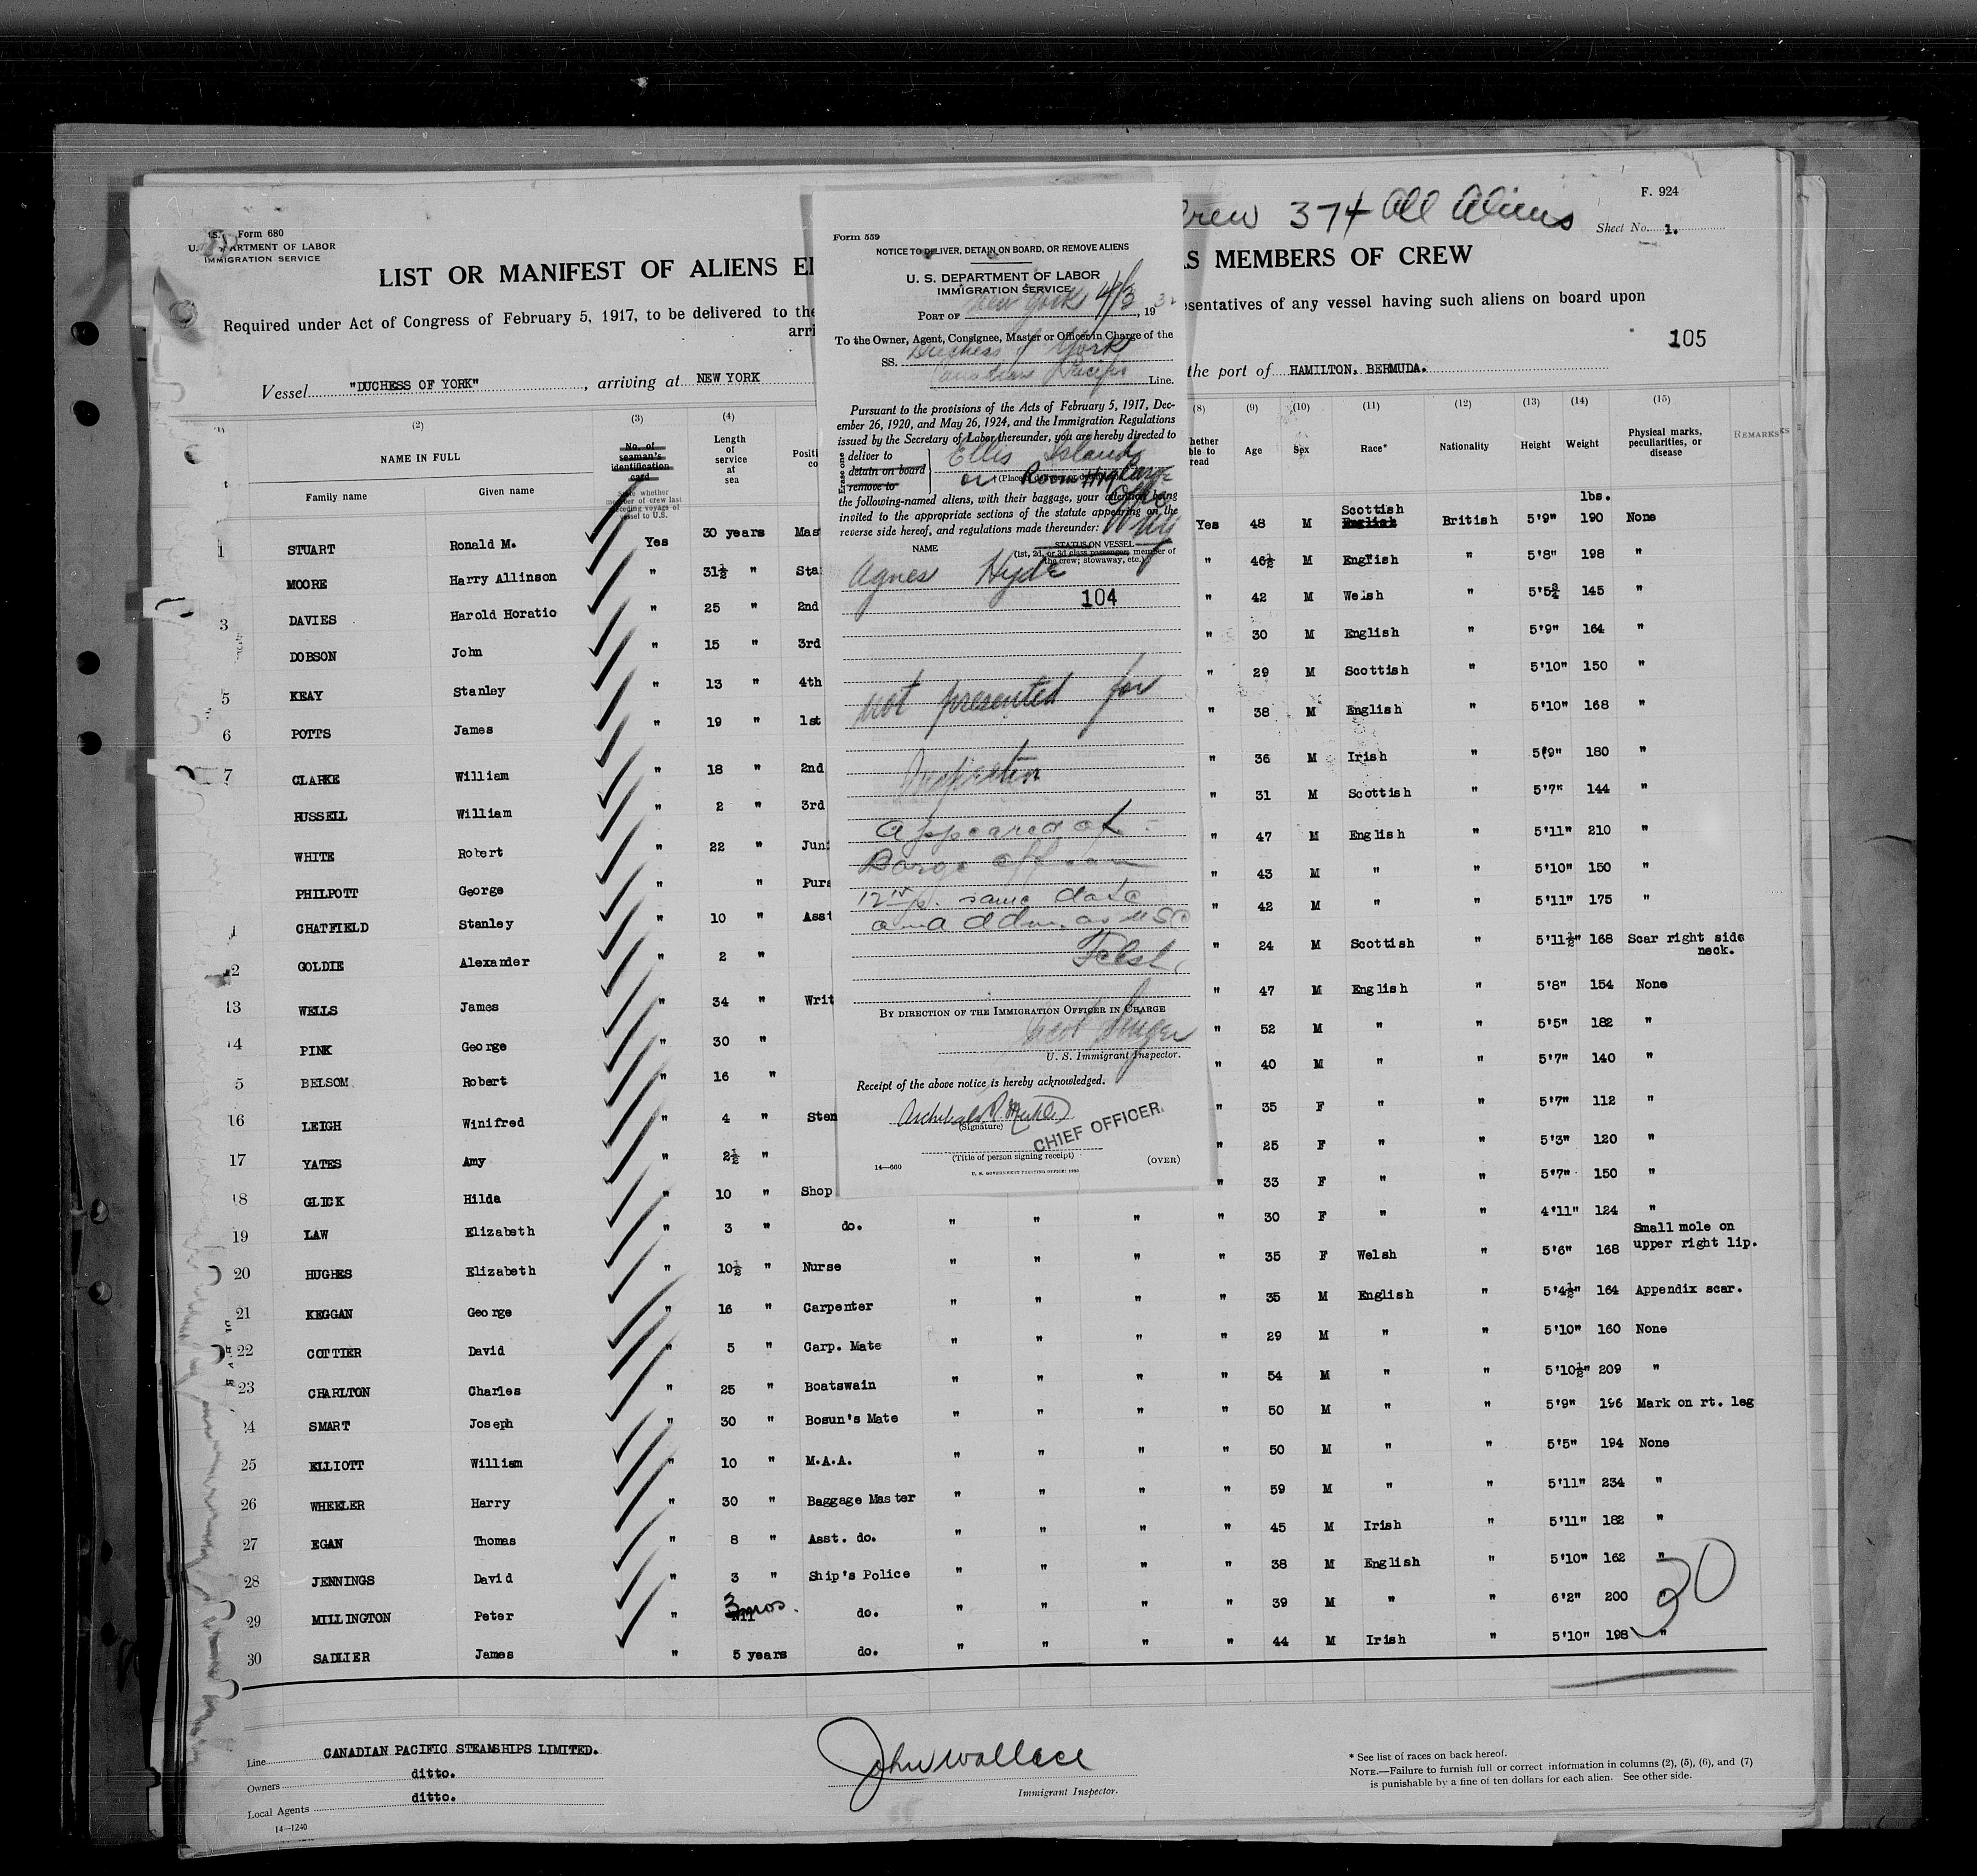 Crew 374 All Aliens
F. 924
Sheet No. 1.
U.S. Form 680
U. S. DEPARTMENT OF LABOR
IMMIGRATION SERVICE
LIST OR MANIFEST OF ALIENS EM
AS MEMBERS OF CREW
Required under Act of Congress of February 5, 1917, to be delivered to the
esentatives of any vessel having such aliens on board upon
arri
105
Vessel "DUCHESS OF YORK", arriving at NEW YORK
the port of HAMILTON, BERMUDA.
(2) (3) (4) (8) (9) (10) (11) (12) (13) (14) (15)
NAME IN FULL
Family name Given name
No. of seaman's identification card
State whether member of crew last preceding voyage of vessel to U.S.
Length of service at sea
Positi
co
hether
ble to
read
Age Sex Race* Nationality Height Weight
Physical marks, peculiarities, or disease
REMARKS
lbs.
1 STUART Ronald M. Yes 30 years Mas Yes 48 M Scottish English British 5'9" 190 None
MOORE Harry Allinson " 31½ " Sta " 46½ M English " 5'8" 198 "
3 DAVIES Harold Horatio " 25 " 2nd " 42 M Welsh " 5'5¾ 145 "
DOBSON John " 15 " 3rd " 30 M English " 5'9" 164 "
5 KEAY Stanley " 13 " 4th " 29 M Scottish " 5'10" 150 "
6 POTTS James " 19 " 1st " 38 M English " 5'10" 168 "
7 CLARKE William " 18 " 2nd " 36 M Irish " 5'9" 180 "
RUSSELL William " 2 " 3rd " 31 M Scottish " 5'7" 144 "
WHITE Robert " 22 " Juni " 47 M English " 5'11" 210 "
PHILPOTT George " " Purs " 43 M " " 5'10" 150 "
1 CHATFIELD Stanley " 10 " Asst " 42 M " " 5'11" 175 "
2 GOLDIE Alexander " 2 " " 24 M Scottish " 5'11½" 168 Scar right side neck.
13 WELLS James " 34 " Writ " 47 M English " 5'8" 154 None
14 PINK George " 30 " " 52 M " " 5'5" 182 "
5 BELSOM Robert " 16 " " 40 M " " 5'7" 140 "
16 LEIGH Winifred " 4 " Sten " 35 F " " 5'7" 112 "
17 YATES Amy " 2½ " " 25 F " " 5'3" 120 "
18 GLICK Hilda " 10 " Shop " 33 F " " 5'7" 150 "
19 LAW Elizabeth " 3 " do. " " " " 30 F " " 4'11" 124 "
20 HUGHES Elizabeth " 10½ " Nurse " " " " 35 F Welsh " 5'6" 168 Small mole on upper right lip.
21 KEGGAN George " 16 " Carpenter " " " " 35 M English " 5'4½" 164 Appendix scar.
22 COTTIER David " 5 " Carp. Mate " " " " 29 M " " 5'10" 160 None
23 CHARLTON Charles " 25 " Boatswain " " " " 54 M " " 5'10½" 209 "
24 SMART Joseph " 30 " Bosun's Mate " " " " 50 M " " 5'9" 196 Mark on rt. leg
25 ELLIOTT William " 10 " M.A.A. " " " " 50 M " " 5'5" 194 None
26 WHEELER Harry " 30 " Baggage Master " " " " 59 M " " 5'11" 234 "
27 EGAN Thomas " 8 " Asst. do. " " " " 45 M Irish " 5'11" 182 "
28 JENNINGS David " 3 " Ship's Police " " " " 38 M English " 5'10" 162 "
29 MILLINGTON Peter " 3 mos. do. " " " " 39 M " " 6'2" 200 "
30 SADLIER James " 5 years do. " " " " 44 M Irish " 5'10" 198 "
30
Line CANADIAN PACIFIC STEAMSHIPS LIMITED.
Owners ditto.
Local Agents ditto.
14—1240
John Wallace
Immigrant Inspector.
* See list of races on back hereof.
NOTE.—Failure to furnish full or correct information in columns (2), (5), (6), and (7)
is punishable by a fine of ten dollars for each alien. See other side.
Form 559
NOTICE TO DELIVER, DETAIN ON BOARD, OR REMOVE ALIENS
U. S. DEPARTMENT OF LABOR
IMMIGRATION SERVICE
PORT OF New York 4/3, 19
To the Owner, Agent, Consignee, Master or Officer in Charge of the
SS. Duchess of York
Canadian Pacific Line.
Pursuant to the provisions of the Acts of February 5, 1917, Dec-
ember 26, 1920, and May 26, 1924, and the Immigration Regulations
issued by the Secretary of Labor thereunder, you are hereby directed to
Erase one
deliver to
detain on board
remove to
Ellis Island
or Barge Office
the following-named aliens, with their baggage, your attention being
invited to the appropriate sections of the statute appearing on the
reverse side hereof, and regulations made thereunder:
NAME STATUS ON VESSEL
(1st, 2d, or 3d class passenger, member of
the crew; stowaway, etc.)
Agnes Hyde
104
not presented for
Inspection
Appeared at
Barge Office
12 same date
and adm. as USC
BY DIRECTION OF THE IMMIGRATION OFFICER IN CHARGE
Singer
U. S. Immigrant Inspector.
Receipt of the above notice is hereby acknowledged.
Archibald
(Signature)
CHIEF OFFICER.
(Title of person signing receipt)
14—660
(OVER)
U. S. GOVERNMENT PRINTING OFFICE: 1930